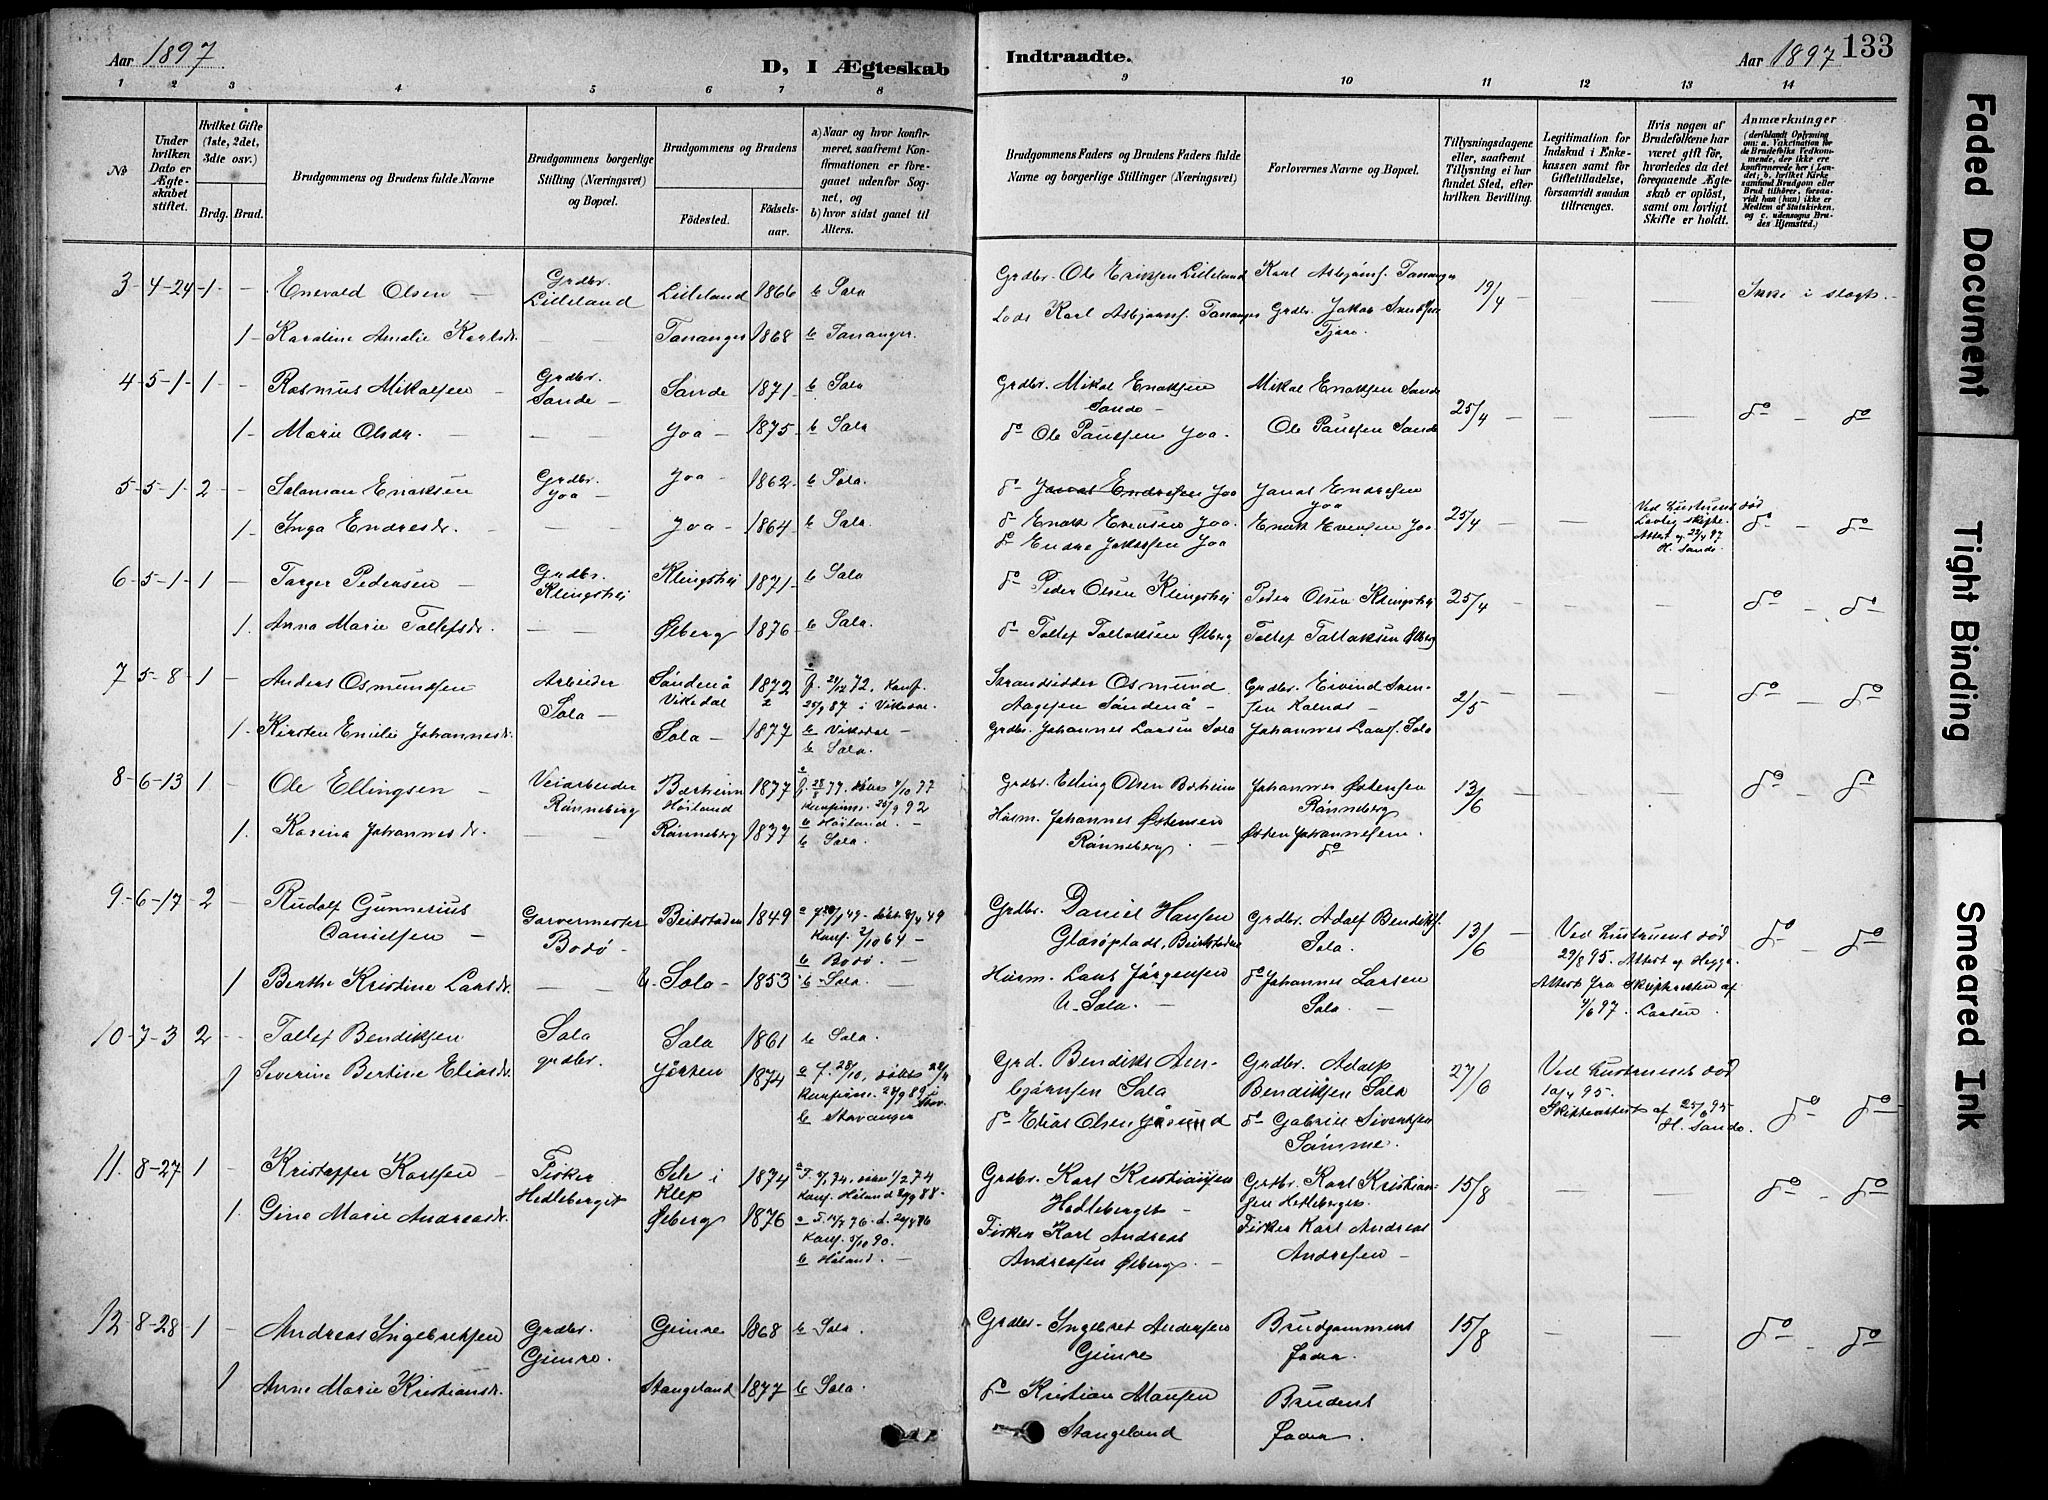 Aar 1897
D, I Ægteskab
Indtraadte.
Aar 1897
133
1 2 3 4 5 6 7 8 9 10 11 12 13 14
No
Under hvilken Dato er Ægteskabet stiftet.
Hvilket Gifte (1ste, 2det, 3die osv.)
Brdg. Brud.
Brudgommens og Brudens fulde Navne
Brudgommens borgerlige Stilling (Næringsvei) og Bopæl.
Brudgommens og Brudens
Fødested.
Fødselsaar.
a) Naar og hvor konfirmeret, saafremt Konfirmationen er foregaaet udenfor Sognet, og
b) hvor sidst gaaet til Alters.
Brudgommens Faders og Brudens Faders fulde Navne og borgerlige Stillinger (Næringsvei)
Forlovernes Navne og Bopæl.
Tillysningsdagene eller, saafremt Tillysning ei har fundet Sted, efter hvilken Bevilling.
Legitimation for Indskud i Enkekassen samt for Giftetilladelse, forsaavidt saadan tiltrænges.
Hvis nogen af Brudefolkene har været gift før, hvorledes da det foregaaende Ægteskab er opløst, samt om lovligt Skifte er holdt.
Anmærkninger (deriblandt Oplysning om: a. Vaccination for de Brudefolks Vedkommende, der ikke ere konfirmerede her i Landet; b. hvilket Kirkesamfund Brudgom eller Brud tilhører, forsaavidt han (hun) ikke er Medlem af Statskirken, og c. udensogns Brudes Hjemsted.)
3 - 4-24 - 1 - Enevald Olsen - Grdbr. Lilleland Lilleland 1866 b Sola Grdbr. Ole Eriksen Lilleland Karl Asbjørns. Tananger 19/4 - - - Ikke i slægt. -
1 - Karoline Amalie Karlsdr. - - Tananger 1868 b Tananger. Lods Karl Asbjørns. Tananger Grdbr. Jakob Svendsen Tjora
4 - 5-1 - 1 - Rasmus Mikalsen - Grdbr. Sande - Sande 1871 - b Sola Grdbr. Mikal Enoksen Sande - Mikal Enoksen Sande 25/4 - - - do - do
1 - Marie Olsdr. - - - Joa - 1875 - b Sola do Ole Paulsen Joa - Ole Paulsen Sande
5 - 5-1 - 2 - Salamon Enoksen Grdbr. Joa - Joa - 1862 - b Sola. do Jonas Endresen Joa Jonas Endresen Joa 25/4 - - Ved hustruens død Lovlig skifte. Attest af 22/4 97 H. Sande. do - do
1 - Inga Endresdr. - - - Joa - 1864 - b Sola. do Enok Evensen Joa. Enok Evensen Joa
do Endre Jakobsen Joa
6 - 5-1 - 1 - Torger Pedersen - Grdbr. Klingshei Klingshei 1871 - b Sola do Peder Olsen Klingshei Peder Olsen Klingshei 25/4 - - - do - do
1. Anna Marie Tollefsdr. - - Ølberg 1876 - b Sola. do Tollef Tollaksen Ølberg Tollef Tollaksen Ølberg
7 - 5-8 - 1 - Anders Osmundsen Arbeider Sola - Søndenå Vikedal 1872 Konf. 25/9 87 i Vikedal. b Vikedal - Strandsidder Osmund Aagesen Søndenå - Grdbr. Eivind Svensen Kolnes - 2/5 - - - do - do
1. Kirsten Emilie Johannesdr. Sola - 1877 b Sola. Grdbr. Johannes Larsen Sola Johannes Lars. Sola
8 - 6-13 1 - Ole Ellingsen - Veiarbeider Rønneberg Bærheim Høiland 1877 Konfirm. 25/9 92 b Høiland. - Grdbr. Elling Olsen Bærheim Johannes Østensen Rønneberg 13/6 - - - do - do
1. Karina Johannesdr. - - Rønneberg 1877 b Sola. Husm. Johannes Østensen Rønneberg. - Østen Johannesen. do
9 - 6-17 - 2 - Rudolf Gunnerius Danielsen - Garvermester Bodø - Beitstaden 1849 b Bodø. - Grdbr. Daniel Hansen Beitstaden Grdbr. Adolf Bendiks. Sola. 13/6 - Ved hustruens død 29/8 95. Attest af Hegge. Attest fra Skifteretten af 4/6 97. Larsen do - do
1 Berthe Kristine Larsdr. - - U. Sola - 1853 b Sola. - Husm. Lars Jørgensen U. Sola. - do Johannes Larsen Sola. -
10 - 7-3 2 - Tollef Bendiksen Sola grdbr. Sola 1861 b Sola. Grd. Bendik Asbjørnsen Sola Grdbr. Adolf Bendiksen Sola 27/6 - Ved hustruens død 10/4 95. Skifteattest af 25/6 95. H. Sande. do - do
1 Severine Bertine Eliasdr. 1874 b Stavanger do Elias Olsen do Gabriel Sivertsen Sømme.
11. 8-27 1 - Kristoffer Karlsen - Fisker Hedleberget Sele i Klep 1874 Konf. Høiland 88. - Grdbr. Karl Kristiansen Hedleberget - Grdbr. Karl Kristiansen Hedleberget. 15/8 - - - do - do
1. Gine Marie Andreasdr. Ølberg 1876 Konf. 5/10 90. b Høiland. - Fisker Karl Andreas Andreassen Ølberg. - Fisker Karl Andreas Andresen -
12 - 8-28 1 - Andreas Ingebretsen Grdbr. Gimre. Gimre 1868 b Sola Grdbr. Ingebret Andersen Gimre Brudgommens fader. 15/8 - - - do - do
1 Anne Marie Kristiansdr. Stangeland 1877 b Sola. do Kristian Monsen Stangeland Brudens fader.
Faded Document
Tight Binding
Smeared Ink